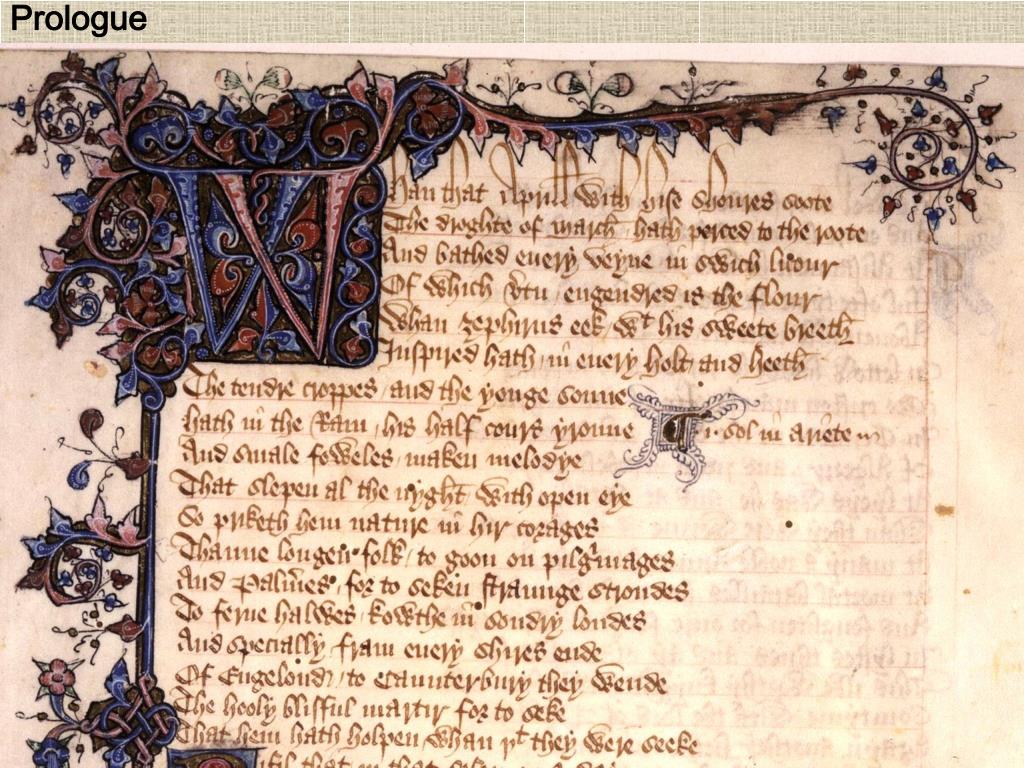 Prologue
Whan that Aprill with hise shoures soote
The droghte of march / hath perced to the roote
And bathed euery veyne in swich licour
Of which v̾tu engendred is the flour
Whan zephirus eek / wt his sweete breeth
Inspired hath / in euery holt and heeth
The tendre croppes / and the yonge sonne
hath in the Ram / his half cours yronne .i. sol in ariete
And smale foweles / maken melodye
That slepen al the nyght / with open eye
So priketh hem nature in hir corages
Thanne longen folk / to goon on pilgͥmages
And Palm̾es / for to seken straunge strondes
To ferne halwes / kowthe in sondry londes
And specially / fram euery shires ende
Of Engelond / to Caunterbury they wende
The hooly blisful martir for to seke
That hem hath holpen whan þt they were seeke